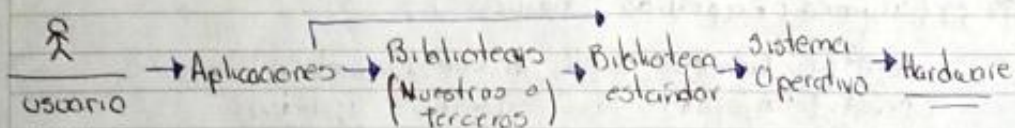 usuario
Aplicaciones
Bibliotecas
(Nuestras o
terceros)
Biblioteca
estándar
Sistema
Operativo
Hardware